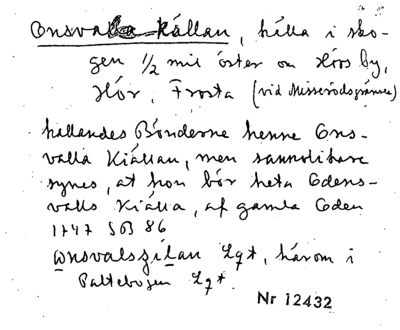 Onsvalla Källan, källa i sko-
gen 1/2 mil öster om Hörs by,
Hör, Frosta (vid Misserödsgränsen)
kallandes Bönderne henne Ons-
valla Kiällan, men sannolikare
synes, at hon bör heta Odens-
valls Kiälla, af gamla Oden
1747 SOB 86
Onsvalszilan Lgt, härom i
Paltebogen Lgt.
Nr 12432